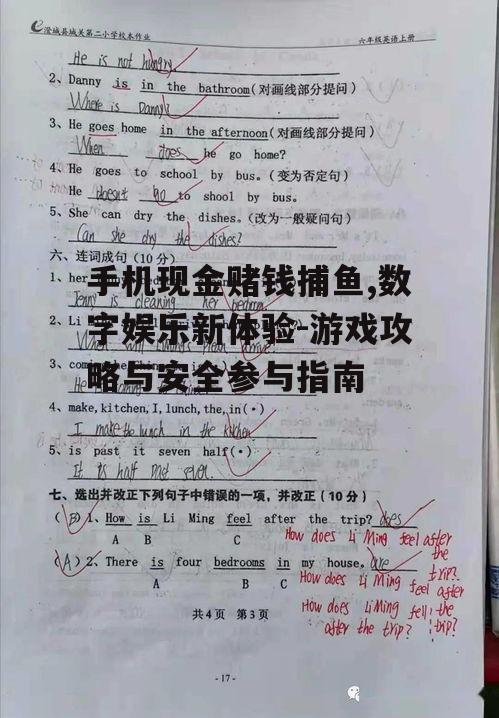 澄城县城关第二小学校本作业
六年级英语上册
He is not hungry
2、Danny is in the bathroom(对画线部分提问)
Where is Danny?
3、He goes home in the afternoon(对画线部分提问)
When does he go home?
4、He goes to school by bus.(变为否定句)
He doesn't go to shool by bus.
5、She can dry the dishes.(改为一般疑问句)
Can she dry the dishes?
六、连词成句(10分)
1、her
Jenny is cleaning her bedroom
手机现金赌钱捕鱼,数
字娱乐新体验-游戏攻
略与安全参与指南
2、Li
When
3、com
4、make,kitchen,I,lunch,the,in(·)
I make the lunch in the kitchen
5、is past it seven half(·)
It is half past seven.
七、选出并改正下列句子中错误的一项，并改正(10分)
(B)1、How is Li Ming feel after the trip? does
A B C
How does Li Ming feel after the trip?
(A)2、There is four bedrooms in my house. are
A B C
How does Li Ming feel after
How does Li Ming fell the
after the trip? trip?
共4页 第3页
-17-